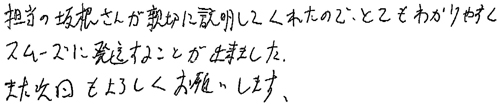 担当の坂根さんが親切に説明してくれたので、とてもわかりやすく
スムーズに発送することが出来ました。
また次回もよろしくお願いします、